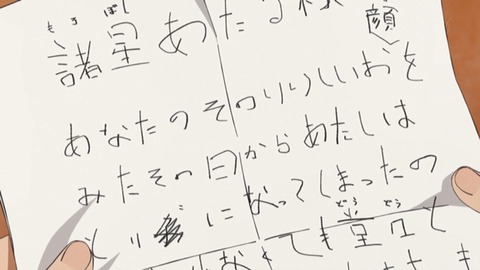 もろ ぼし
諸星あたる様
顔
あなたのそのりりしいおを
みたその日からあたしは
とり になってしまったの
どう どう
ても